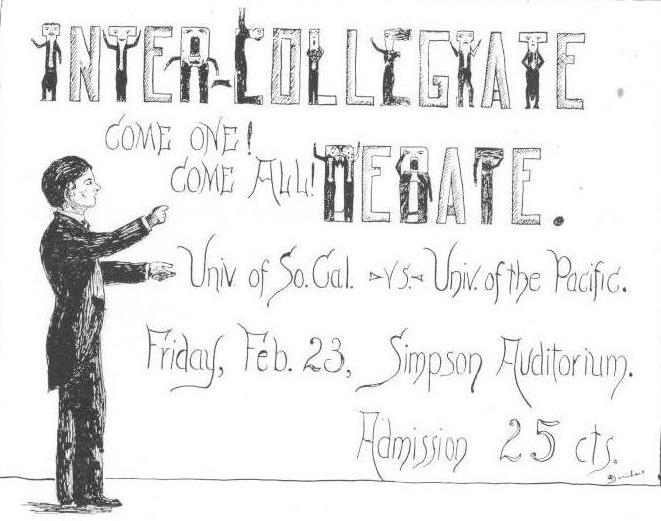 INTER-COLLEGIATE
COME ONE!
COME ALL!
DEBATE.
Univ. of So. Cal. -vs.- Univ. of the Pacific.
Friday, Feb. 23, Simpson Auditorium.
Admission 25 cts.